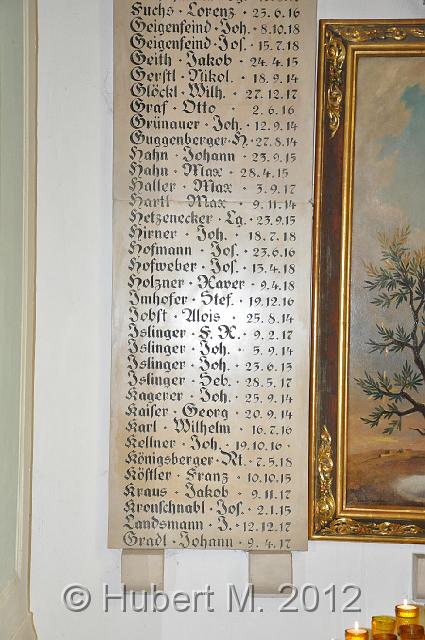 Fuchs · Lorenz · 25.6.16
Geigenfeind · Joh. · 8.10.18
Geigenfeind · Jos. · 15.7.18
Geith · Jakob · 24.4.15
Gerstl · Nikol. · 18.9.14
Glöckl · Wilh. · 27.12.17
Graf · Otto · 2.6.16
Grünauer · Joh. · 12.9.14
Guggenberger · H. · 27.8.14
Hahn · Johann · 23.9.15
Hahn · Max · 28.4.15
Haller · Max · 3.9.17
Hartl · Max · 9.11.14
Hetzenecker · Lg. · 23.9.15
Hirner · Joh. · 18.7.18
Hofmann · Jos. · 23.6.16
Hofweber · Jos. · 13.4.18
Holzner · Xaver · 9.4.18
Imhofer · Stef. · 19.12.16
Jobst · Alois · 25.8.14
Islinger · F. X. · 9.2.17
Islinger · Joh. · 5.9.14
Islinger · Joh. · 23.6.15
Islinger · Seb. · 28.5.17
Kagerer · Joh. · 25.9.14
Kaiser · Georg · 20.9.14
Karl · Wilhelm · 16.7.16
Kellner · Joh. · 19.10.16 ·
Königsberger · M. · 7.5.18
Köstler · Franz · 10.10.15
Kraus · Jakob · 9.11.17
Kronschnabl · Jos. · 2.1.15
Landsmann · J. · 12.12.17
Gradl · Johann · 9.4.17
© Hubert M. 2012